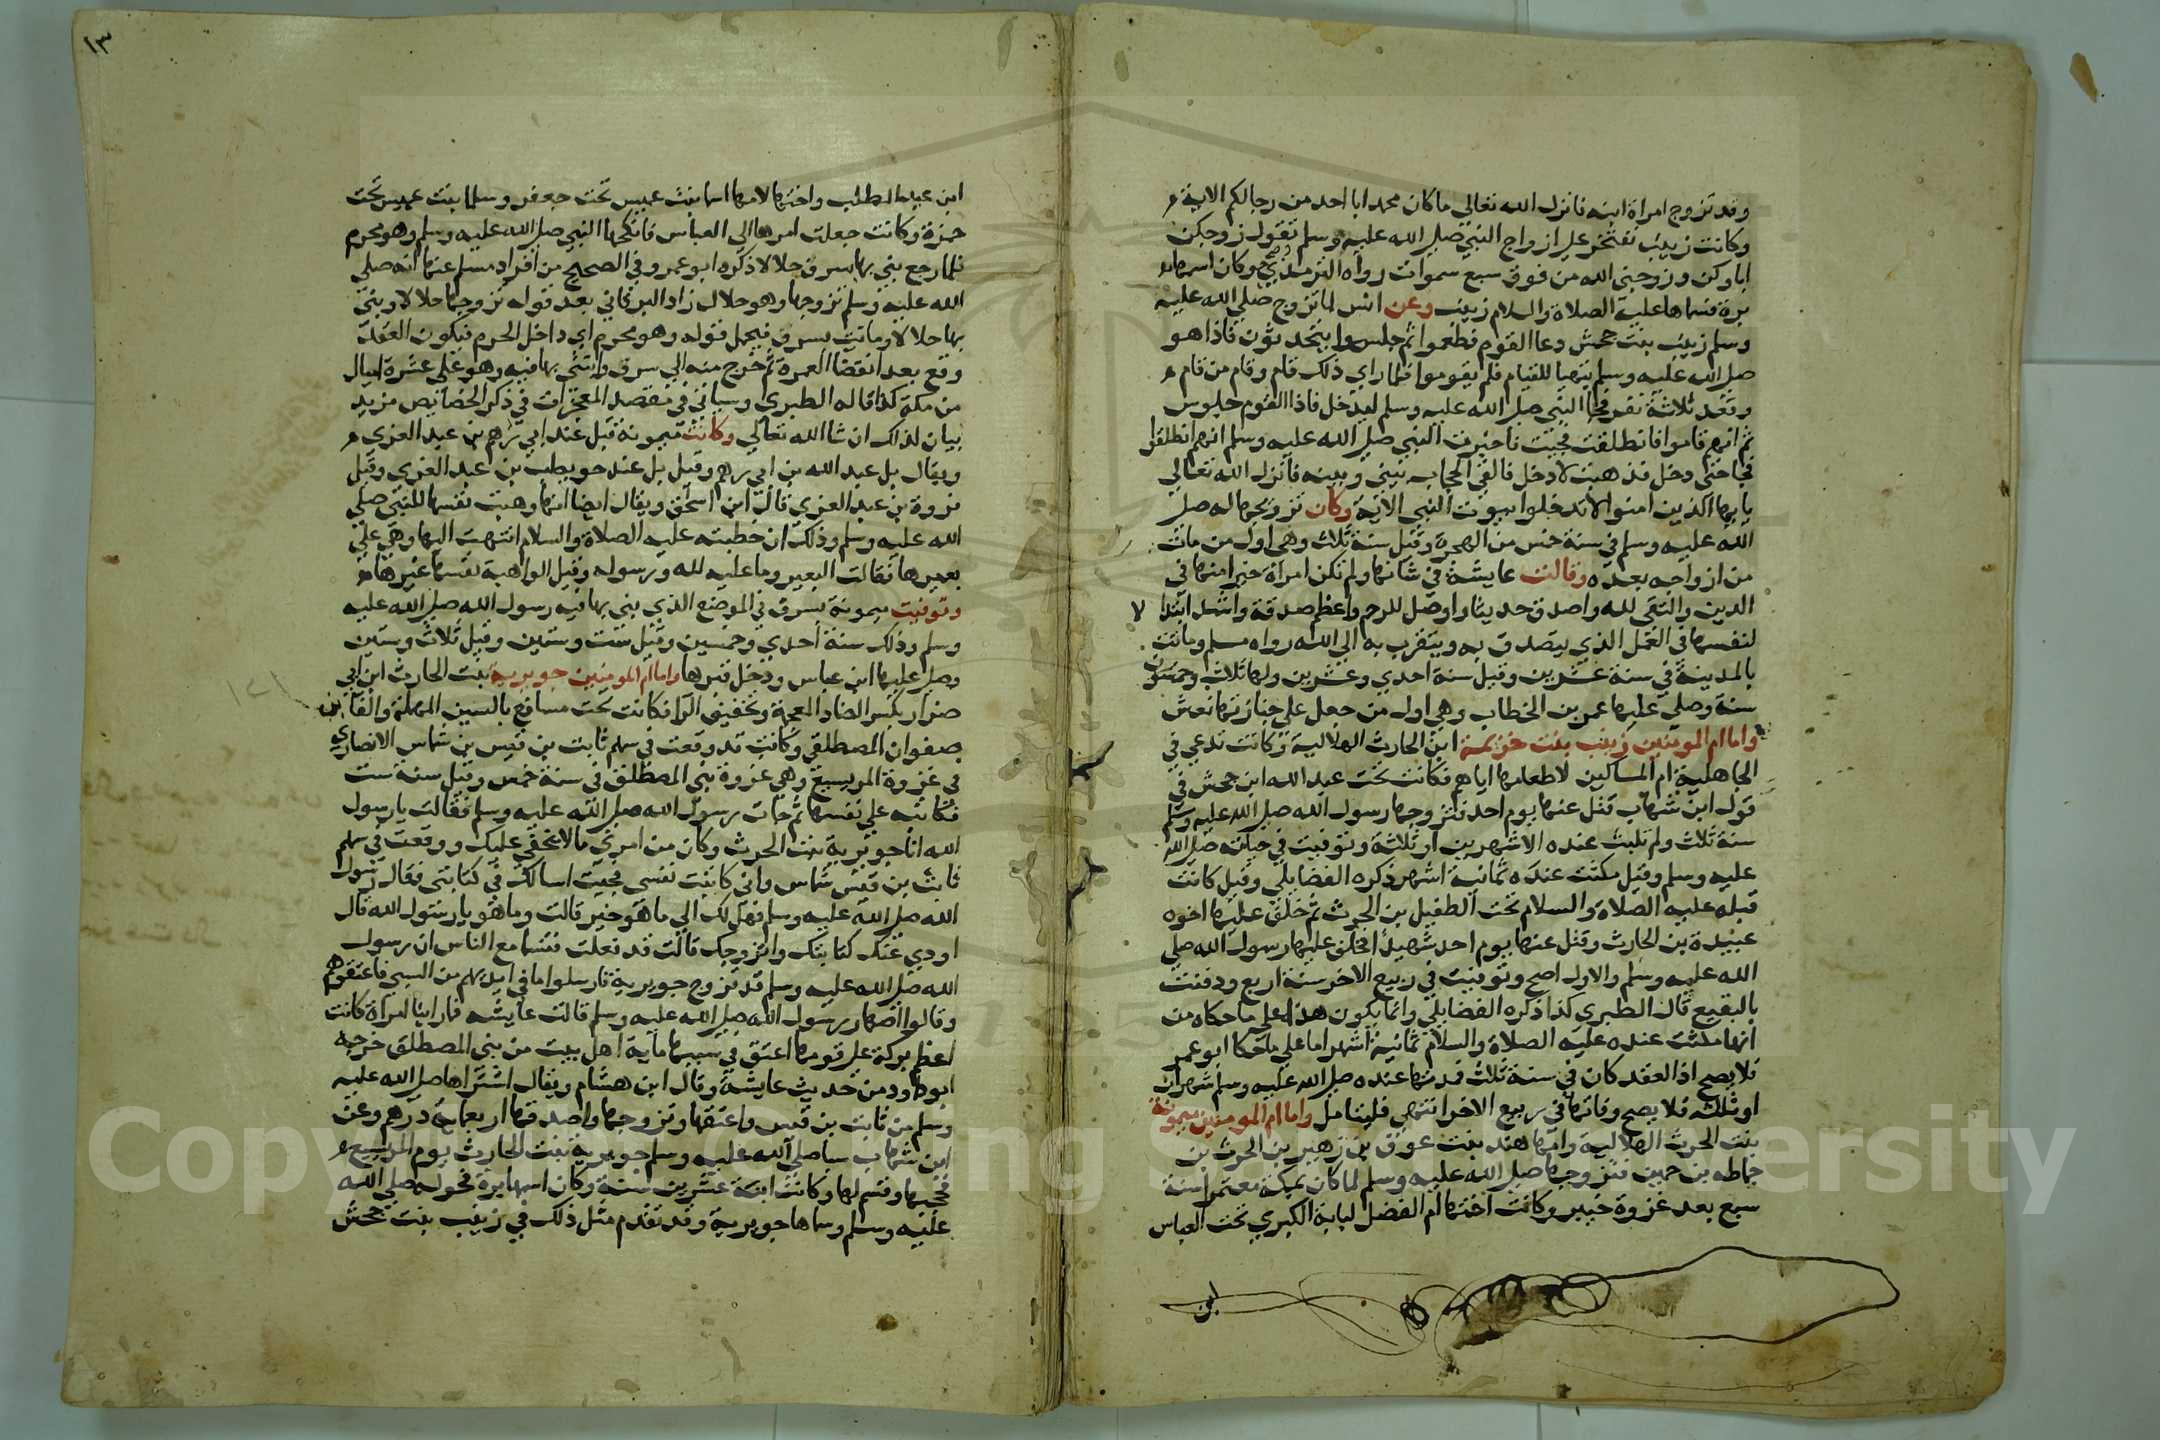 وقد تزوج امراة ابنه فانزل الله تعالي ما كان محمد ابا احد من رجالكم الاية
وكانت زينب تفتخر علي ازواج النبي صلي الله عليه وسلم تقول زوجكن
اباوكن وزوجني الله من فوق سبع سموات رواه الترمذي وكان اسمها
برة فسماها عليه الصلاة والسلام زينب وعن انس لما تزوج صلي الله عليه
وسلم زينب بنت جحش دعا القوم فطعموا ثم جلسوا يتحدثون فاذا هو
صلي الله عليه وسلم يتهيا للقيام فلم يقوموا فلما راي ذلك قام وقام من قام
وقعد ثلاثة نفر فجا النبي صلي الله عليه وسلم ليدخل فاذا القوم جلوس
ثم انهم قاموا فانطلقت فجيت فاخبرت النبي صلي الله عليه وسلم انهم انطلقوا
فجا حتي دخل فذهبت لادخل فالقي الحجاب بيني وبينه فانزل الله تعالي
يا يها الذين امنوا لا تدخلوا بيوت النبي الاية وكان تزويجها له صلي
الله عليه وسلم في سنة خمس من الهجرة وقيل سنة ثلاث وهي اول من مات
من ازواجه بعده وقالت عايشة في شانها ولم تكن امراة خير امنها في
الدين واتقي لله واصدق حديثا واوصل للرحم واعظم صدقة واشد ابتذالا
لنفسها في العمل الذي يتصدق به ويتقرب به الي الله رواه مسلم وماتت
بالمدينة في سنة عشرين وقيل سنة احدي وعشرين ولها ثلاث وخمسون
سنة وصلي عليها عمر بن الخطاب وهي اول من جعل علي جنازتها نعش
واما ام المومنين زينب بنت خزيمة ابن الحارث الهلالية وكانت تدعي في
الجاهلية ام المساكين لاطعامها اياهم فكانت تحت عبد الله ابن جحش في
قول ابن شهاب قتل عنها يوم احد فتزوجها رسول الله صلي الله عليه وسلم
سنة ثلاث ولم تلبث عنده الا شهرين او ثلاثة وتوفيت في حياته صلي الله
عليه وسلم وقيل مكثت عنده ثمانية اشهر ذكره الفضايلي وقيل كانت
قبله عليه الصلاة والسلام تحت الطفيل بن الحرث ثم خلف عليها اخوه
عبيدة بن الحارث وقتل عنها يوم احد شهيدا فخلف عليها رسول الله صلي
الله عليه وسلم والاول اصح وتوفيت في ربيع الاخر سنة اربع ودفنت
بالبقيع قال الطبري كذا ذكره الفضايلي وانما يكون هذا علي ما حكاه من
انها مكثت عنده عليه الصلاة والسلام ثمانية اشهر اما علي ما حكا ابو عمر
فلا يصح اذ العقد كان في سنة ثلاث فمدتها عنده صلي الله عليه وسلم شهران
او ثلثة فلا يصح وفاتها في ربيع الاخر انتهي فليتامل واما ام المومنين ميمونة
بنت الحرث الهلالية وامها هند بنت عوف بن زهير بن الحرث بن
حماطه بن حمير فتزوجها صلي الله عليه وسلم لما كان بمكة معتمرا سنة
سبع بعد غزوة خيبر وكانت اختها ام الفضل لبابة الكبري تحت العباس
ابن
١٣
ابن عبد المطلب واختها لامها اسما بنت عميس تحت جعفر وسلما بنت عميس تحت
حمزة وكانت جعلت امرها الي العباس فانكحها النبي صلي الله عليه وسلم وهو محرم
فلما رجع بني بها بسرف حلالا ذكره ابو عمر وفي الصحيح من افراد مسلم عنها انه صلي
الله عليه وسلم تزوجها وهو حلال زاد البرقاني بعد قوله تزوجها حلالا وبني
بها حلالا وماتت بسرف فيحمل قوله وهو محرم اي داخل الحرم فيكون العقد
وقع بعد انقضا العمرة ثم خرج منه الي سرف وابتني بها فيه وهو علي عشرة اميال
من مكة كذا قاله الطبري وسياتي في مقصد المعجزات في ذكر الخصايص مزيد
بيان لذلك ان شا الله تعالي وكانت ميمونة قبل عند ابي رهم بن عبد العزي
ويقال بل عبد الله بن ابي رهم وقيل بل عند حويطب بن عبد العزي وقيل
فروة بن عبد العزي قال ابن اسحق ويقال ايضا انها وهبت نفسها للنبي صلي
الله عليه وسلم وذلك ان خطبته عليه الصلاة والسلام انتهت اليها وهي علي
بعيرها فقالت البعير وما عليه لله ورسوله وقيل الواهبة نفسها غيرها
وتوفيت ميمونة بسرف في الموضع الذي بني بها فيه رسول الله صلي الله عليه
وسلم وذلك سنة احدي وخمسين وقيل ست وستين وقيل ثلاث وستين
وصلي عليها ابن عباس ودخل قبرها واما ام المومنين جويرية بنت الحارث ابن ابي
ضرار بكسر الضاد المعجمة وتخفيف الرا فكانت تحت مسافع بالسين المهملة والفا بن
صفوان المصطلقي وكانت قد وقعت في سهم ثابت بن قيس بن شماس الانصاري
في غزوة المريسيع وهي غزوة بني المصطلق في سنة خمس وقيل سنة ست
فكاتبه علي نفسها ثم جات رسول الله صلي الله عليه وسلم فقالت يا رسول
الله انا جويرية بنت الحرث وكان من امري ما لا يخفي عليك ووقعت في سهم
ثابت بن قيس شماس واني كاتبت نفسي فجيت اسالك في كتابتي فقال رسول
الله صلي الله عليه وسلم فهل لك الي ما هو خير قالت وما هو يا رسول الله قال
اودي عنك كتابتك واتزوجك قالت قد فعلت فتسامع الناس ان رسول
الله صلي الله عليه وسلم قد تزوج جويرية فارسلوا ما في ايديهم من السبي فاعتقوهم
وقالوا اصهار رسول الله صلي الله عليه وسلم قالت عايشه فما راينا امراة كانت
اعظم بركة علي قومها اعتق في سببها ماية اهل بيت من بني المصطلق خرجه
ابو داود من حديث عايشة وقال ابن هشام ويقال اشتراها صلي الله عليه
وسلم من ثابت بن قيس واعتقها وتزوجها واصدقها اربعماية درهم وعن
ابن شهاب سبا صلي الله عليه وسلم جويرية بنت الحارث يوم المريسيع
فحجبها وقسم لها وكانت ابنة عشرين سنة وكان اسمها برة فحوله صلي الله
عليه وسلم وسماها جويرية وقد تقدم مثل ذلك في زينب بنت جحش
Copyright © King Saud University